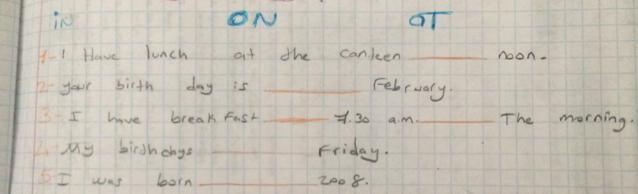 in ON aT
1-I Have lunch at the canteen ______ noon.
2-your birth day is ______ February.
3-I have break fast ______ 7.30 a.m. ______ The morning.
4-My birthdays ______ Friday.
5-I was born ______ 2008.